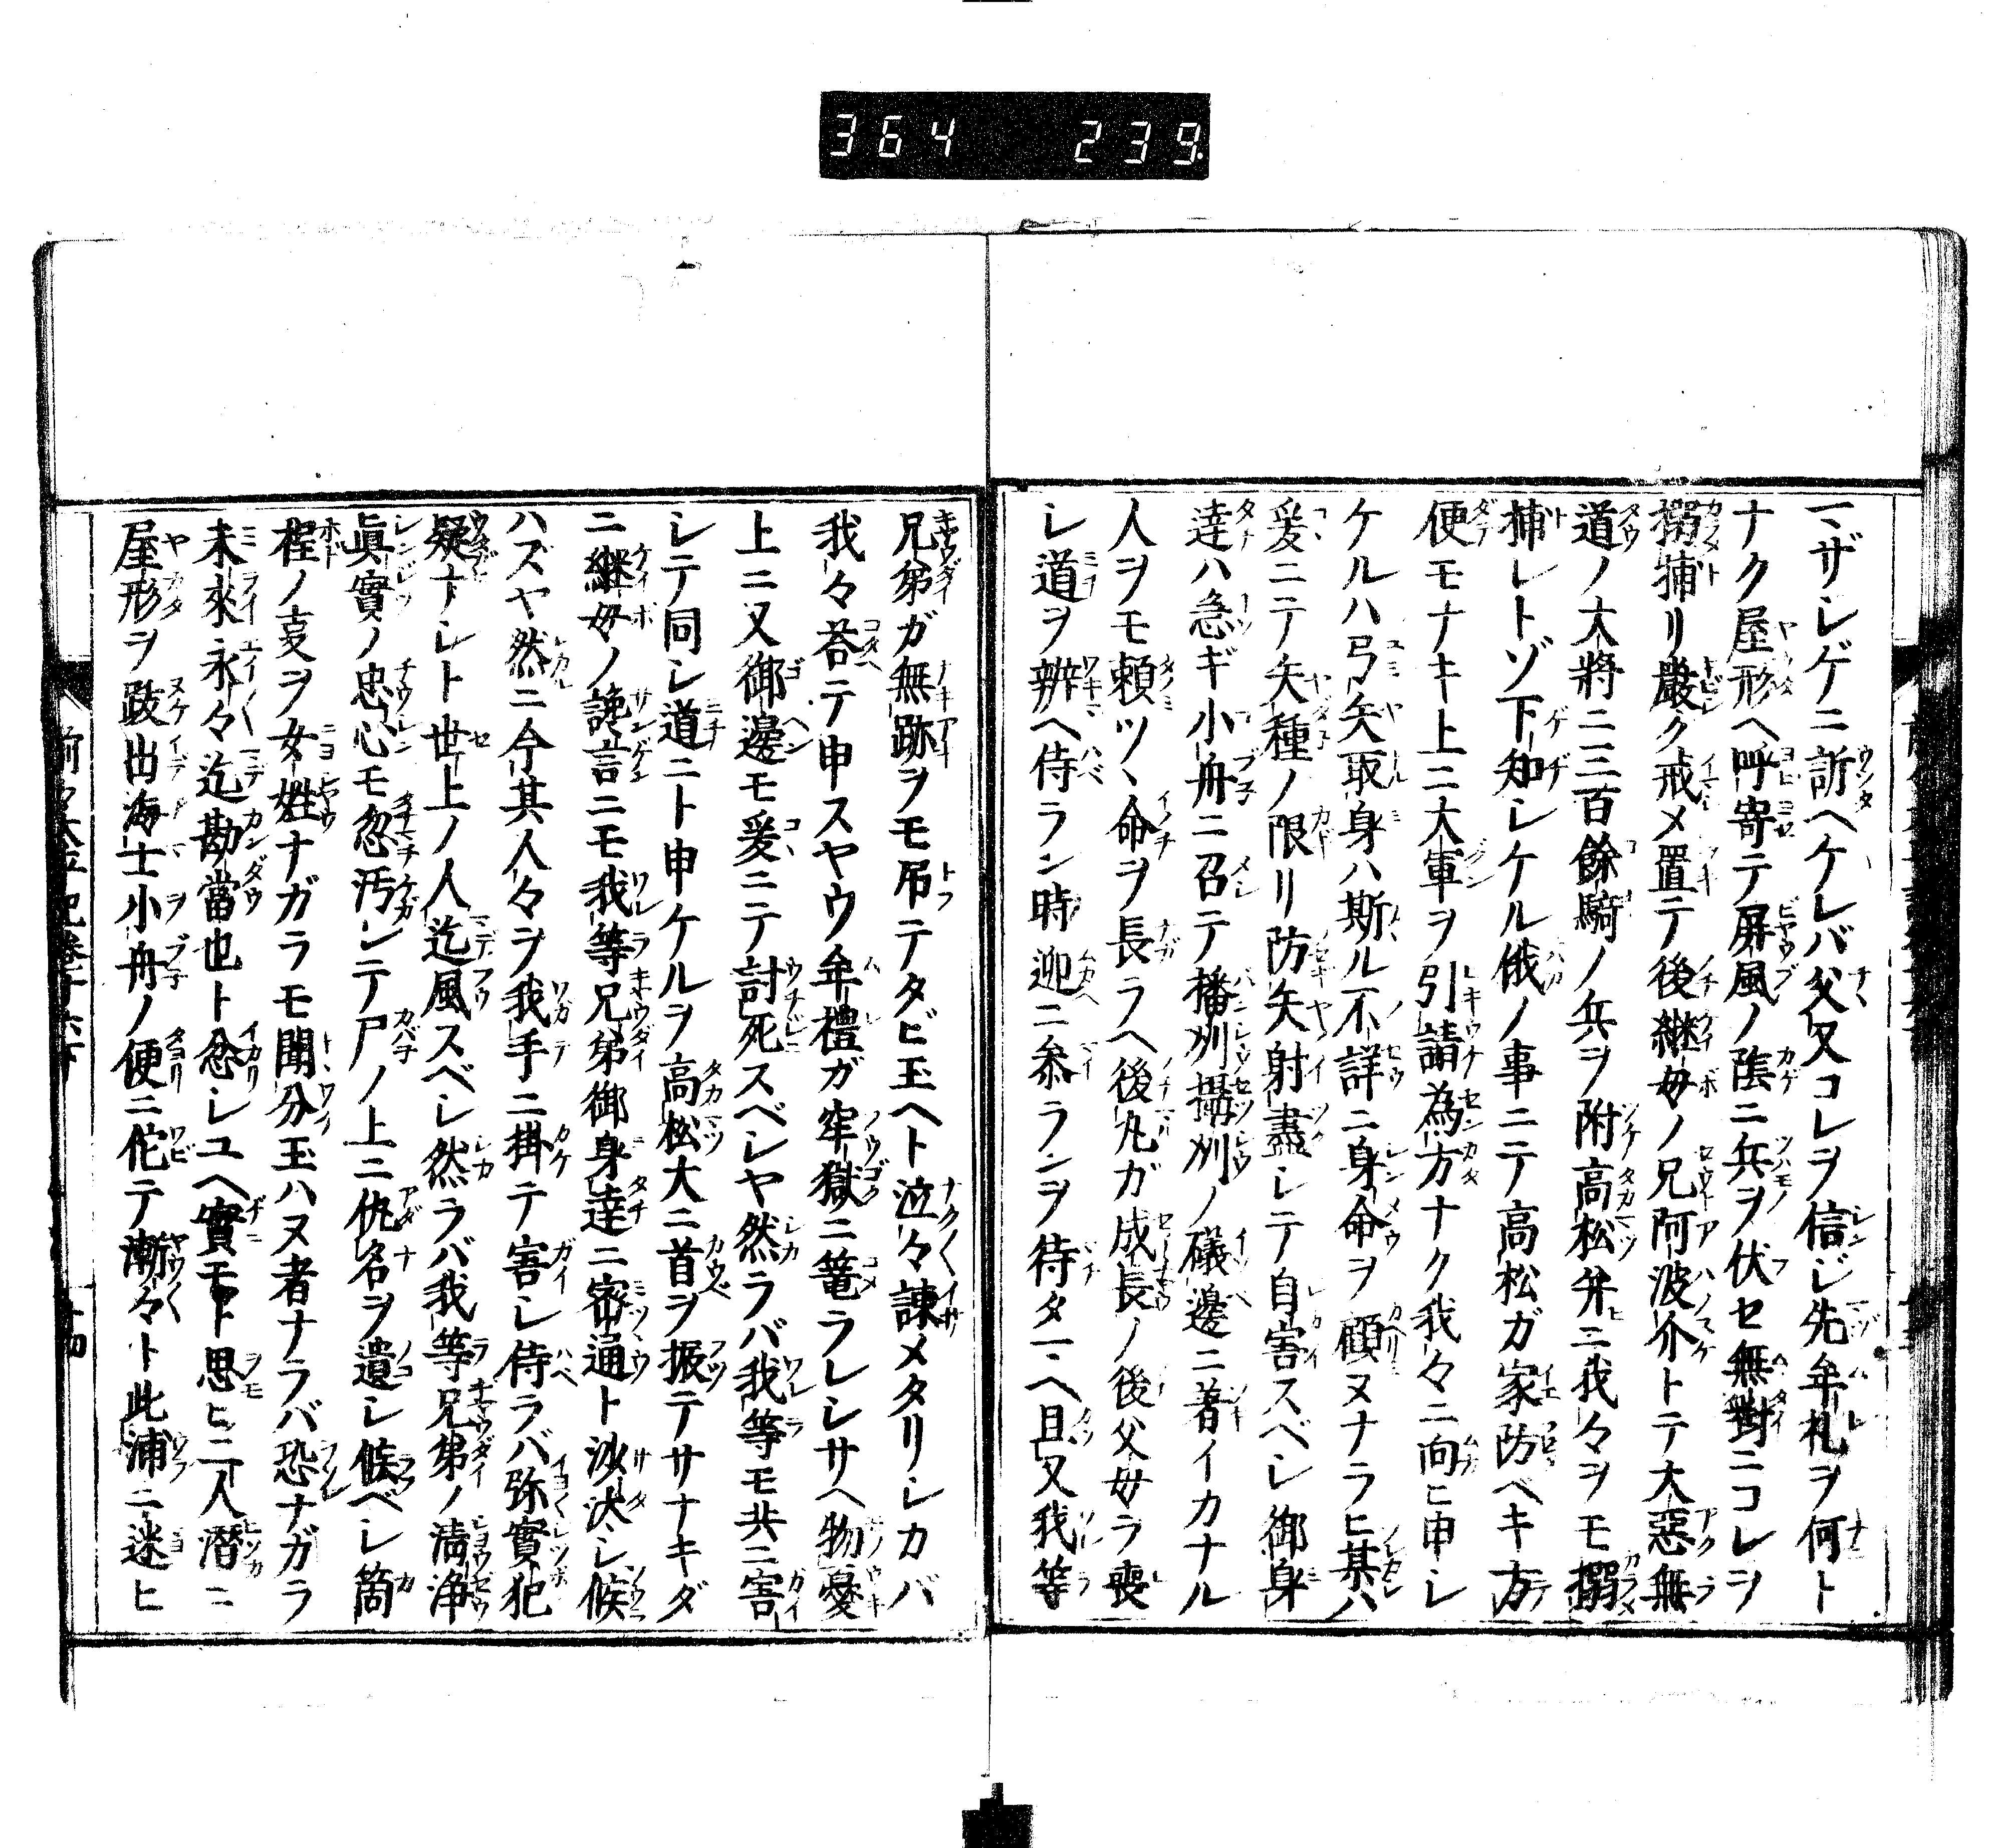 364 239.
一ザシゲニ訴ヘケレバ父又コレヲ信ジ先牟札ヲ何ト
ナク屋形ヘ呼寄テ屏風ノ陰ニ兵ヲ伏セ無對ニコレヲ
搦捕リ嚴ク戒メ置テ後継母ノ兄阿波介トテ大惡無
道ノ大將ニ三百餘騎ノ兵ヲ附高松并ニ我々ヲモ搦
捕レトゾ下知シケル俄ノ事ニテ高松ガ家防ベキ方
便モナキ上ニ大軍ヲ引請為方ナク我々ニ向ヒ申シ
ケルハ弓矢取身ハ斯ル不詳ニ身命ヲ顧ヌナラヒ某ハ
爰ニテ矢種ノ限リ防矢射盡シテ自害スベシ御身
達ハ急ギ小舟ニ召テ播刕攝刕ノ礒邊ニ著イカナル
人ヲモ頼ツヽ命ヲ長ラヘ後丸ガ成長ノ後父母ラ喪
シ道ヲ辨ヘ侍ラン時迎ニ参ランヲ待タマヘ且又我等
兄弟ガ無跡ヲモ吊テタビ玉ヘト泣々諫メタリシカバ
我々荅テ申スヤウ牟禮ガ牢獄ニ篭ラレシサヘ物憂
上ニ又御邊モ爰ニテ討死スベシヤ然ラバ我等モ共ニ害
シテ同シ道ニト申ケルヲ高松大ニ首ヲ振テサナキダ
ニ継母ノ讒言ニモ我等兄弟御身達ニ密通ト沙汰シ候
ハズヤ然ニ今其人々ヲ我手ニ掛テ害シ侍ラバ弥實犯
疑ナシト世上ノ人迄風スベシ然ラバ我等兄弟ノ清浄
眞實ノ忠心モ忽汚シテ尸ノ上ニ仇名ヲ遺シ候ベシ箇
程ノ㕝ヲ女姓ナガラモ聞分玉ハヌ者ナラバ恐ナガラ
未來永々迄勘當也ト忿シユヘ實モト思ヒ二人潜ニ
屋形ヲ跂出海士小舟ノ便ニ佗テ漸々ト此浦ニ迷ヒ